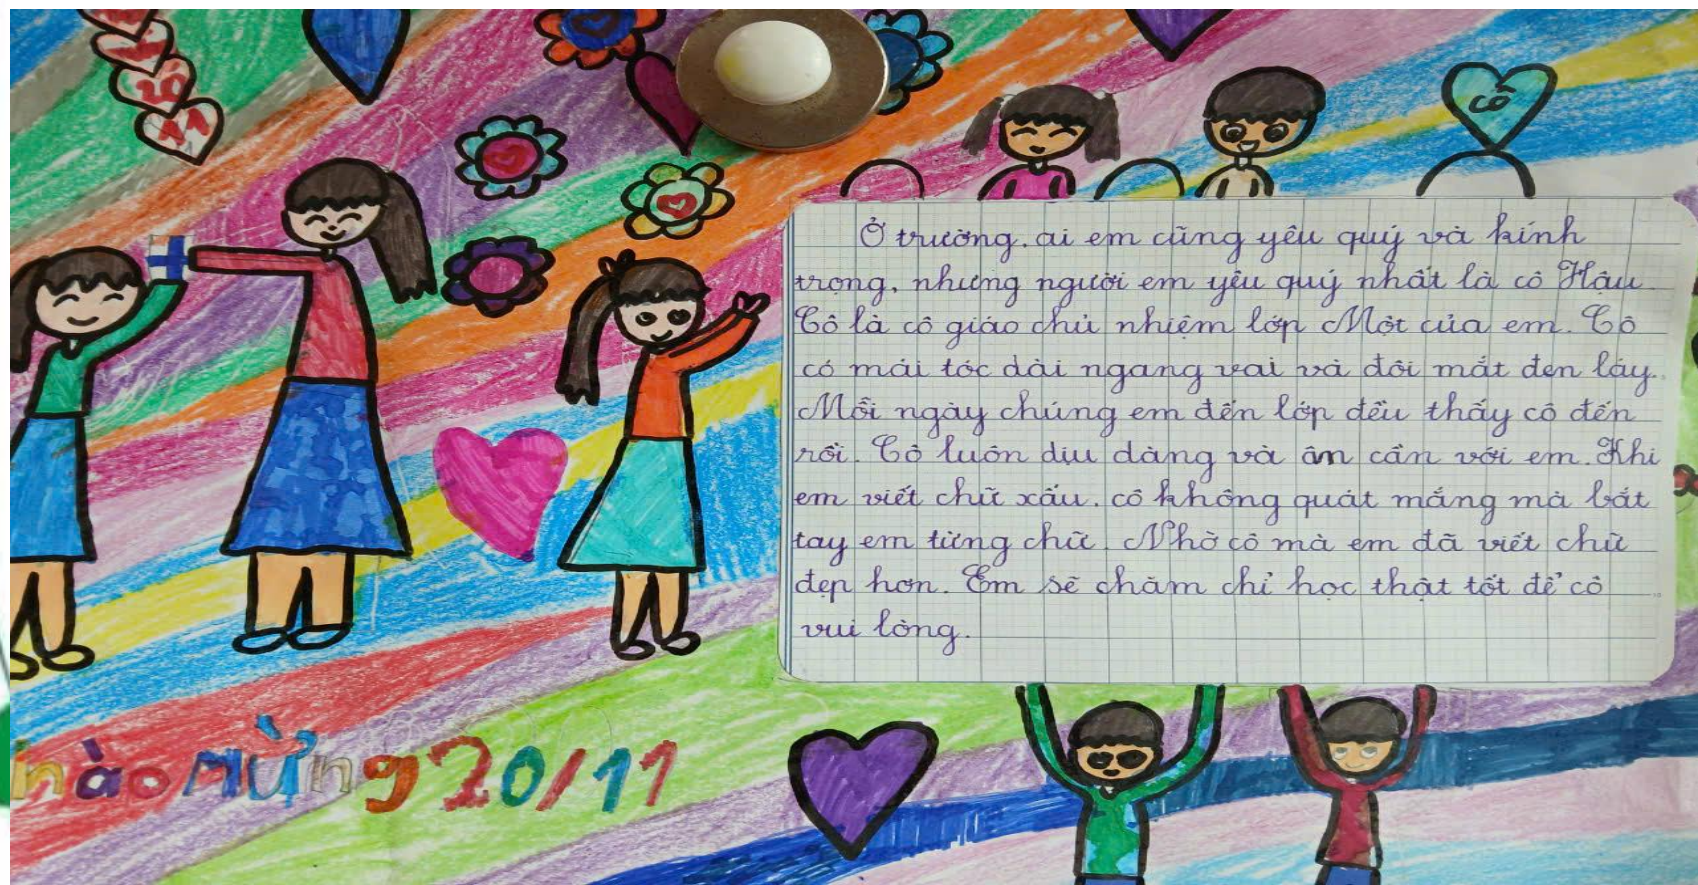 20
11
cô
Ở trường, ai em cũng yêu quý và kính
trọng, nhưng người em yêu quý nhất là cô Hậu.
Cô là cô giáo chủ nhiệm lớp Một của em. Cô
có mái tóc dài ngang vai và đôi mắt đen láy.
Mỗi ngày chúng em đến lớp đều thấy cô đến
rồi. Cô luôn dịu dàng và ân cần với em. Khi
em viết chữ xấu, cô không quát mắng mà bắt
tay em từng chữ. Nhờ cô mà em đã viết chữ
đẹp hơn. Em sẽ chăm chỉ học thật tốt để cô
vui lòng.
hào mừng 20/11